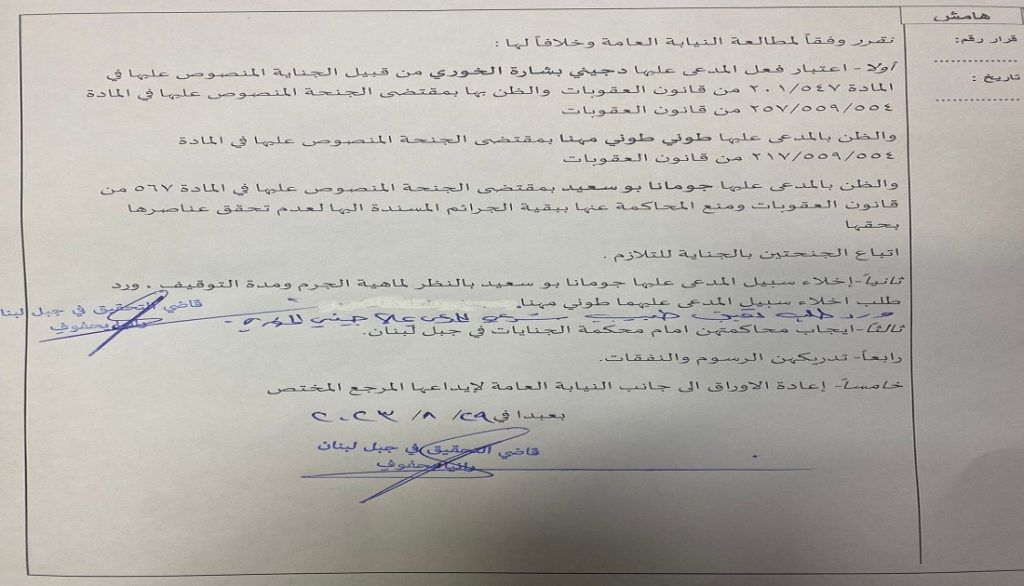 هامش
قرار رقم:
تاريخ :
نقرر وفقاً لمطالعة النيابة العامة وخلافاً لها :
أولا - اعتبار فعل المدعى عليها دجيني بشارة الخوري من قبيل الجناية المنصوص عليها في
المادة ٢٠١/٥٤٧ من قانون العقوبات والظن بها بمقتضى الجنحة المنصوص عليها في المادة
٢٥٧/٥٥٩/٥٥٤ من قانون العقوبات
والظن بالمدعى عليها طوني طوني مهنا بمقتضى الجنحة المنصوص عليها في المادة
٢١٧/٥٥٩/٥٥٤ من قانون العقوبات
والظن بالمدعى عليها جومانا بو سعيد بمقتضى الجنحة المنصوص عليها في المادة ٥٦٧ من
قانون العقوبات ومنع المحاكمة عنها ببقية الجرائم المسندة اليها لعدم تحقق عناصرها
بحقها
اتباع الجنحتين بالجناية للتلازم .
ثانياً-إخلاء سبيل المدعى عليها جومانا بو سعيد بالنظر لماهية الجرم ومدة التوقيف . ورد
طلب اخلاء سبيل المدعى عليهما طوني مهنا
قاضي التحقيق في جبل لبنان
رانيا يحفوفي
ورد طلب تعيين طبيب شرعي للمدعى عليها جيني الخوري
ثالثاً-ايجاب محاكمتهن امام محكمة الجنايات في جبل لبنان.
رابعاً- تدريكهن الرسوم والنفقات.
خامساً- إعادة الاوراق الى جانب النيابة العامة لإيداعها المرجع المختص
بعبدا في ٢٩/ ٨/ ٢٠٢٣
قاضي التحقيق في جبل لبنان
رانيا يحفوفي